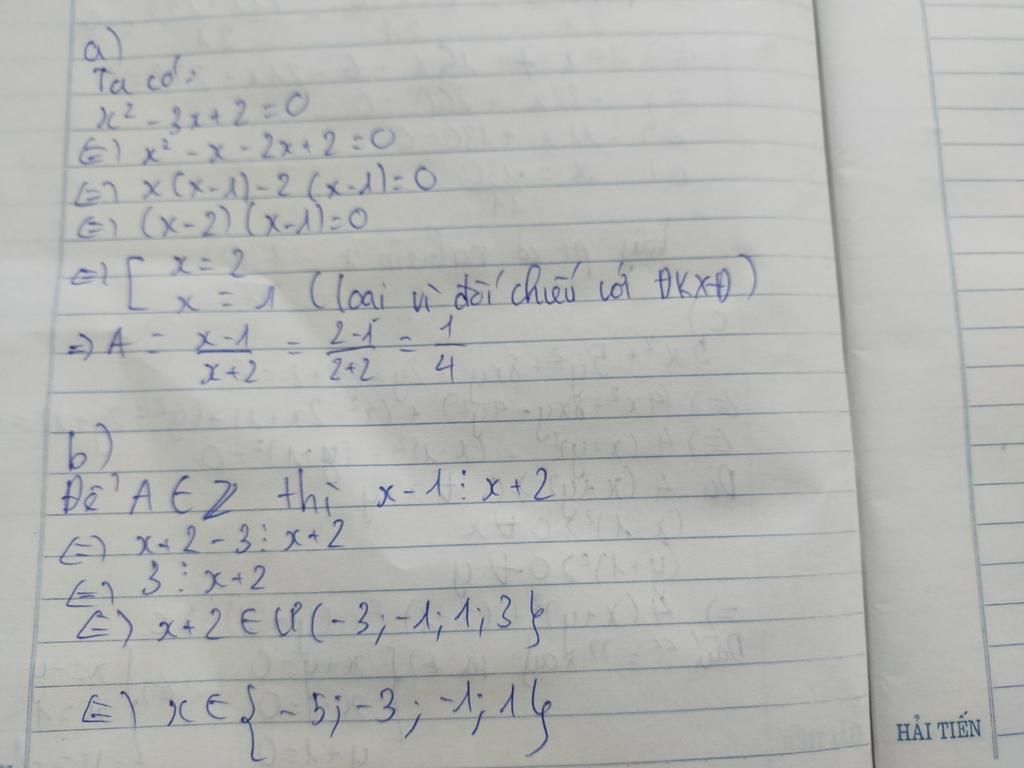 a)
Ta có:
x² - 3x + 2 = 0
(=) x² - x - 2x + 2 = 0
(=) x(x-1) - 2(x-1) = 0
(=) (x-2)(x-1) = 0
=> [ x = 2
x = 1 (loại vì đối chiếu với ĐKXĐ)
=) A = \frac{x-1}{x+2} = \frac{2-1}{2+2} = \frac{1}{4}
b)
Để A ∈ ℤ thì x-1 ⋮ x+2
(=) x+2-3 ⋮ x+2
(=) 3 ⋮ x+2
(=) x+2 ∈ Ư(-3; -1; 1; 3}
(=) x ∈ {-5; -3; -1; 1}
HẢI TIẾN